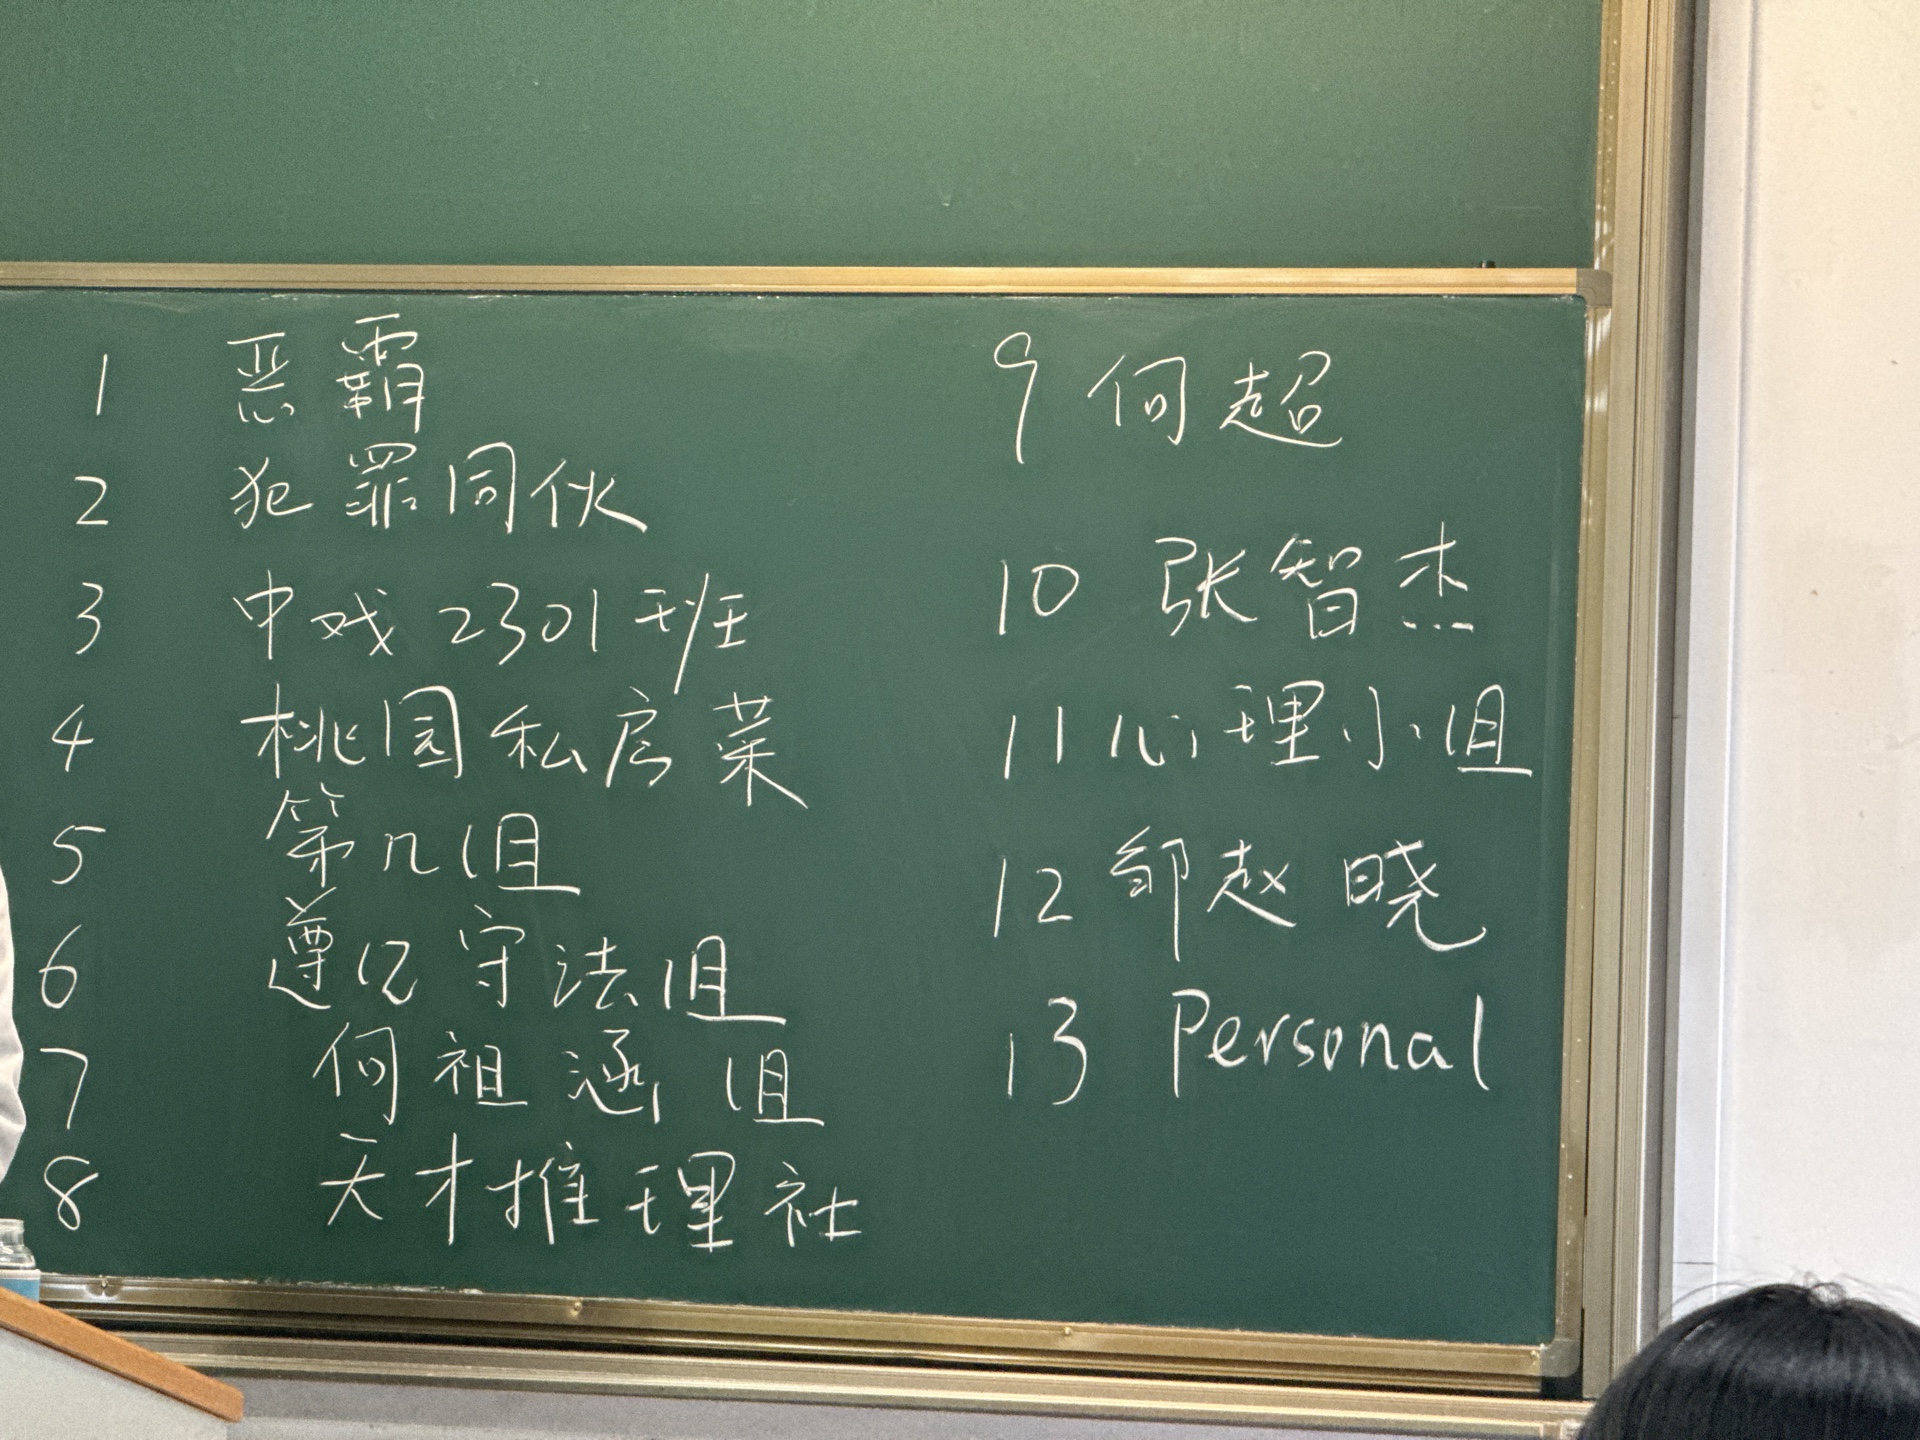 1 恶霸
2 犯罪同伙
3 中戏2301班
4 桃园私房菜
5 第几组
6 遵纪守法组
7 何祖涵组
8 天才推理社
9 何超
10 张智杰
11 心理小组
12 邹赵晓
13 Personal